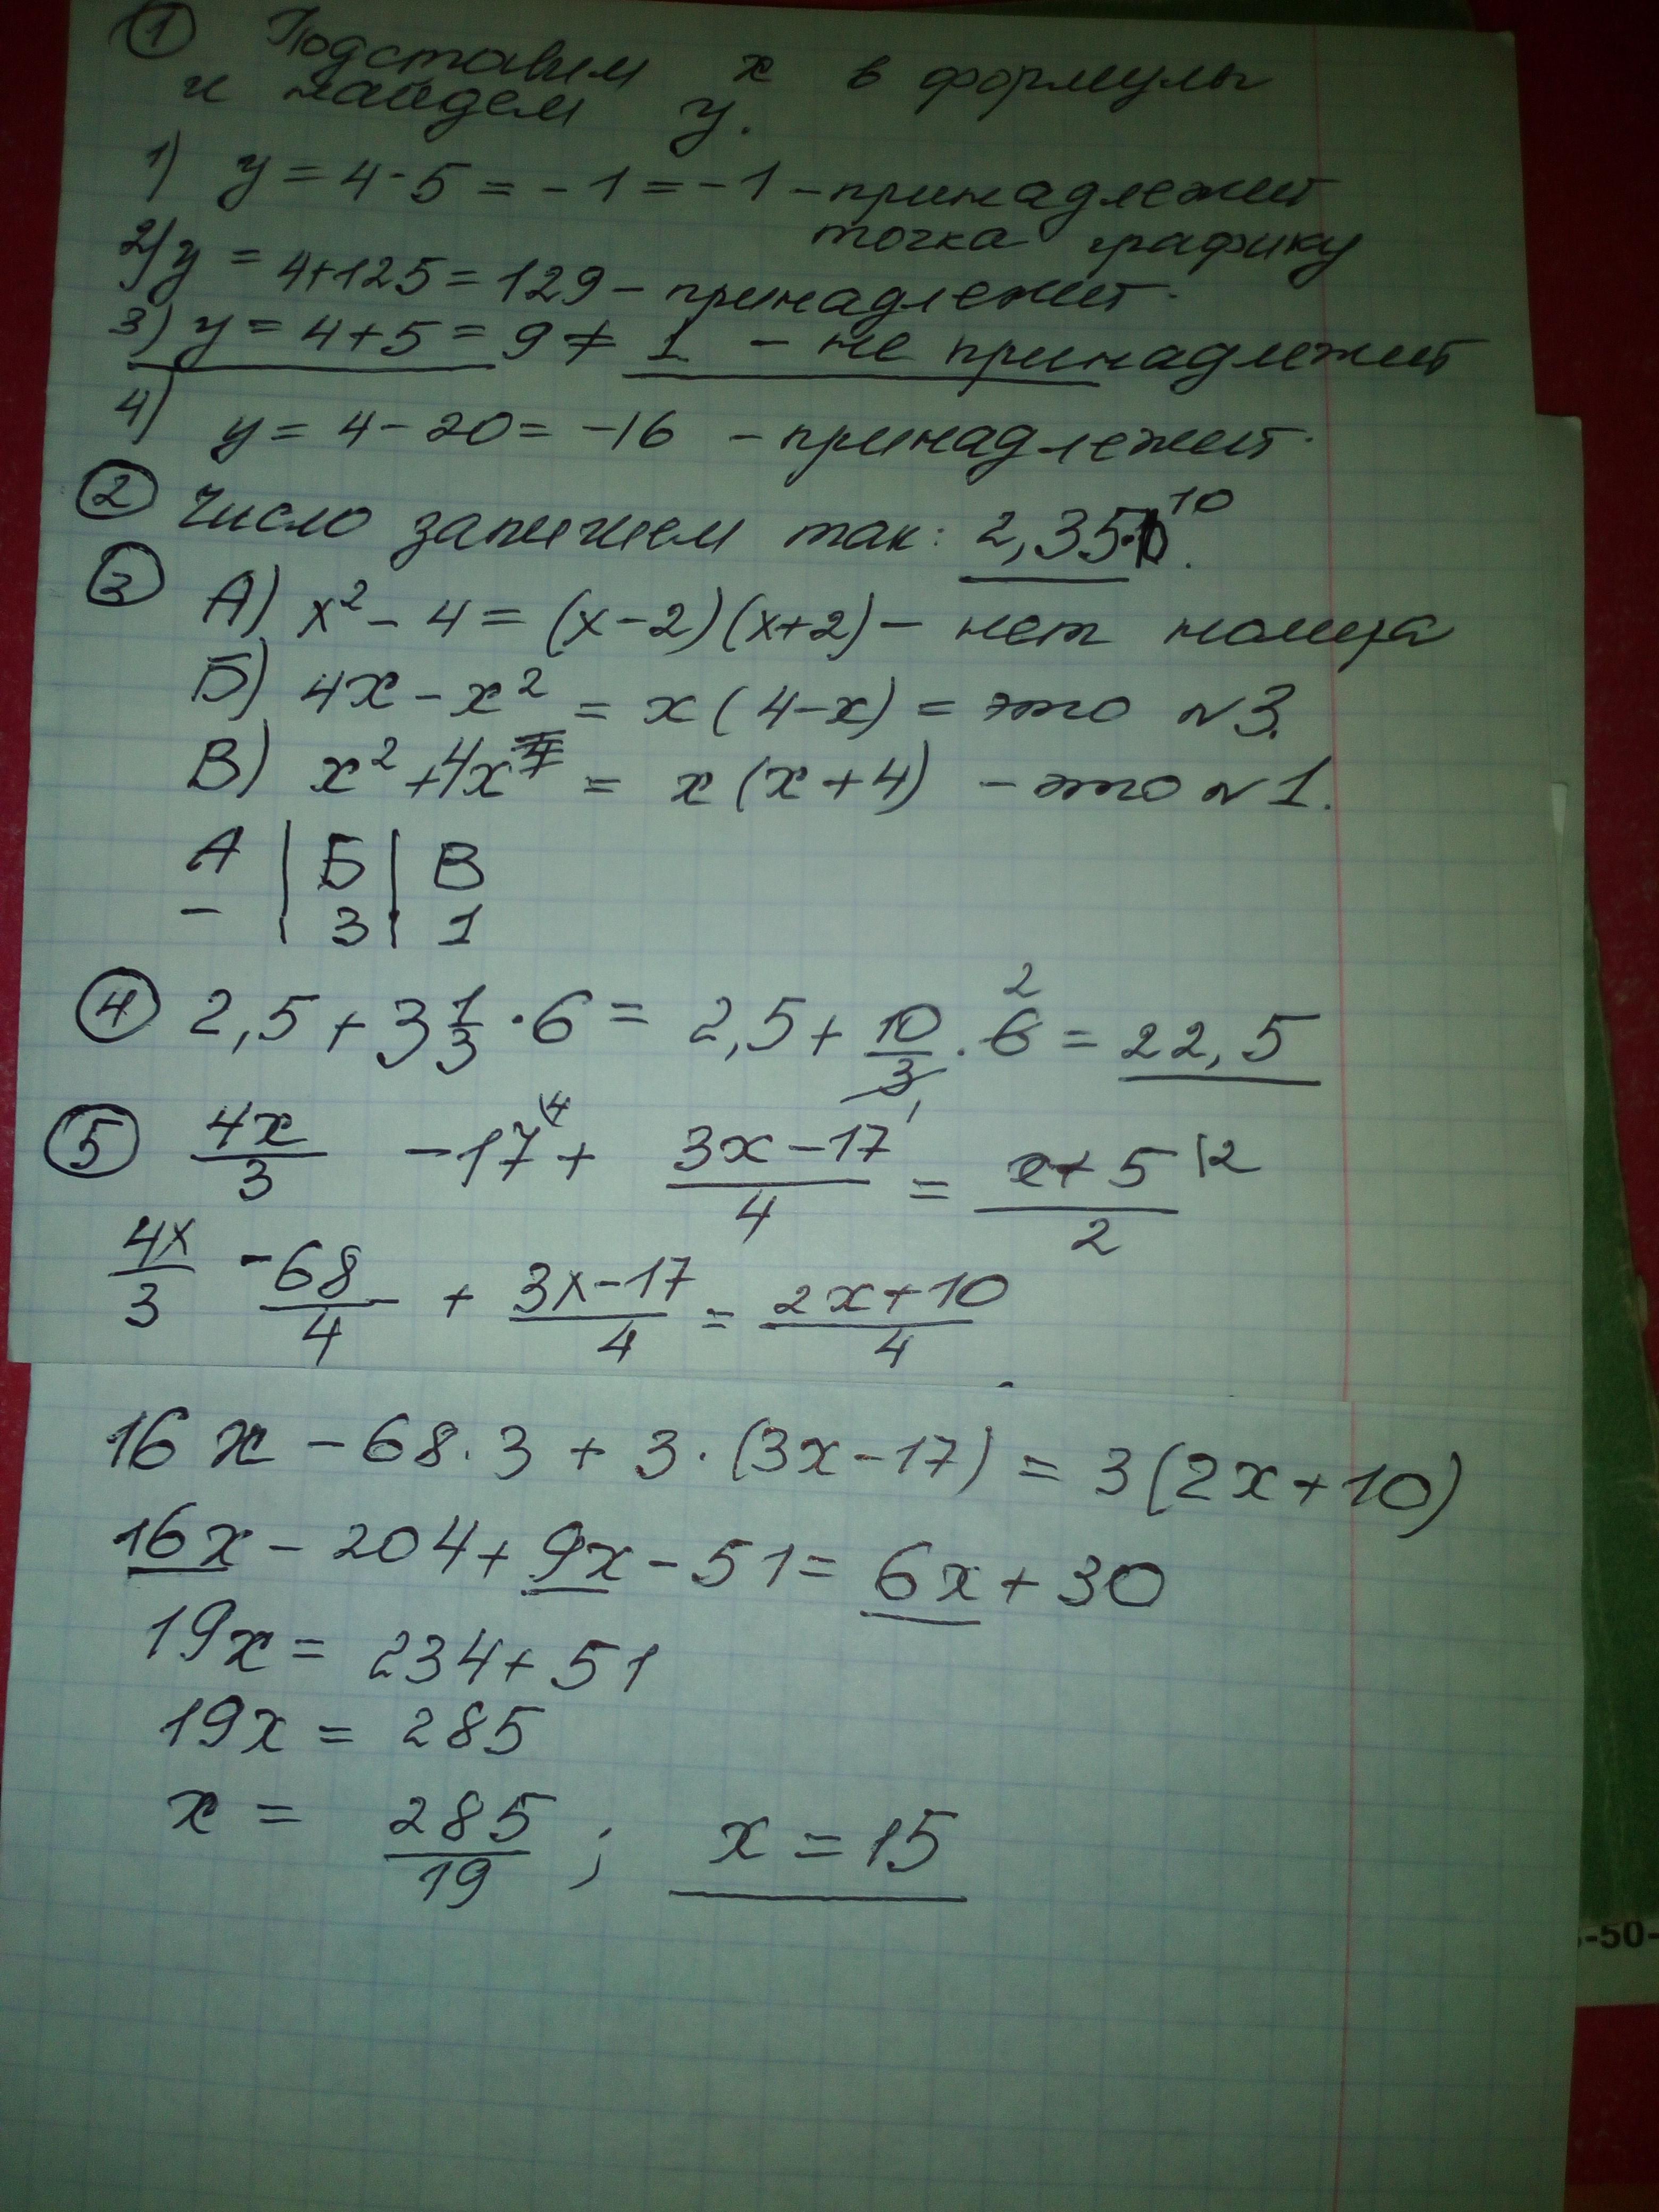 ① Подставим x в формулы
и найдем y.
1) y = 4 - 5 = -1 = -1 - принадлежит
точка графику
2) y = 4+125 = 129 - принадлежит.
3) y = 4+5 = 9 ≠ 1 - не принадлежит
4) y = 4 - 20 = -16 - принадлежит.
② Число запишем так: 2,35·10¹⁰.
③ А) x² - 4 = (x-2)(x+2) - нет номера
Б) 4x - x² = x(4-x) = это №3.
В) x² + 4x = x(x+4) - это №1.
А | Б | В
- | 3 | 1
④ 2,5 + 3 1/3 · 6 = 2,5 + 10/3 · 6 2 = 22,5
⑤ 4x/3 - 17 \4 + (3x-17)/4 = (x+5)/2 \2
4x/3 - 68/4 + (3x-17)/4 = (2x+10)/4
16x - 68·3 + 3·(3x-17) = 3(2x+10)
16x - 204 + 9x - 51 = 6x + 30
19x = 234 + 51
19x = 285
x = 285/19 ; x = 15
-50-